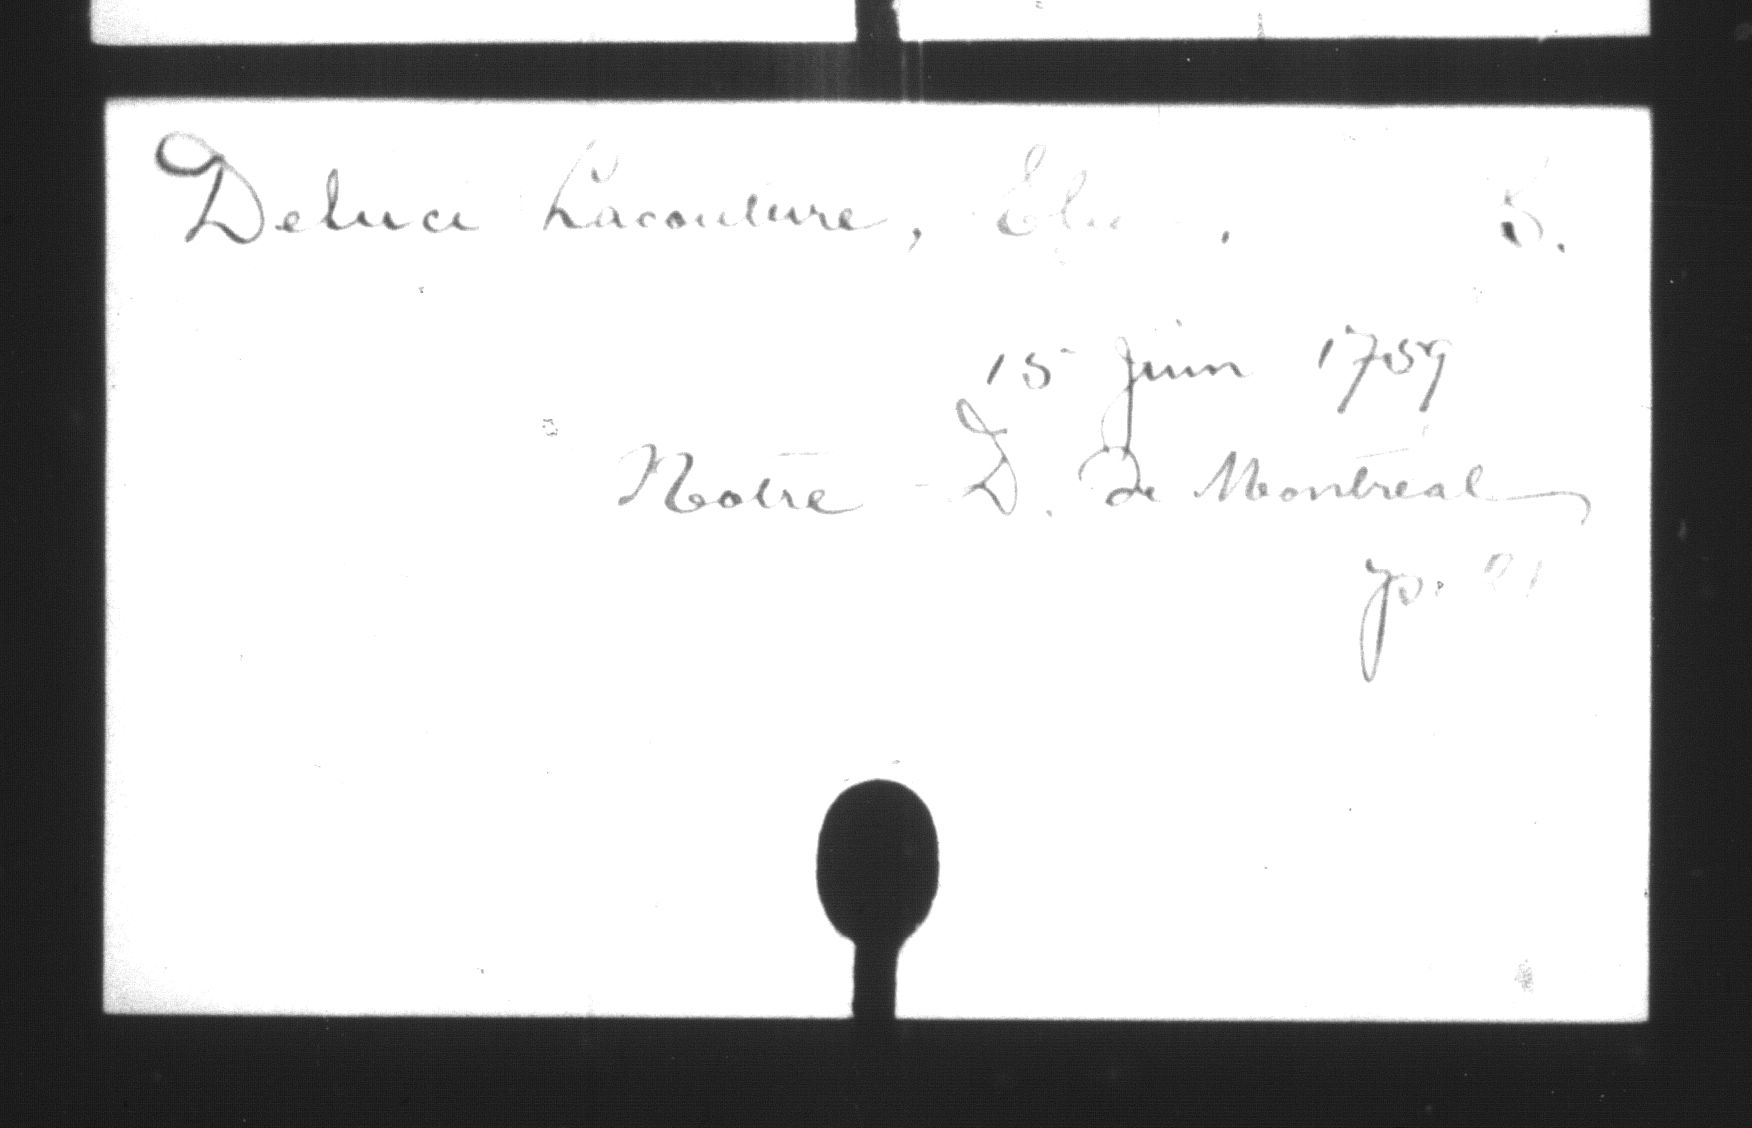 Deluci Lacouture, . S.
15 Juin 1759
Notre - D. de Montréal
p. 21